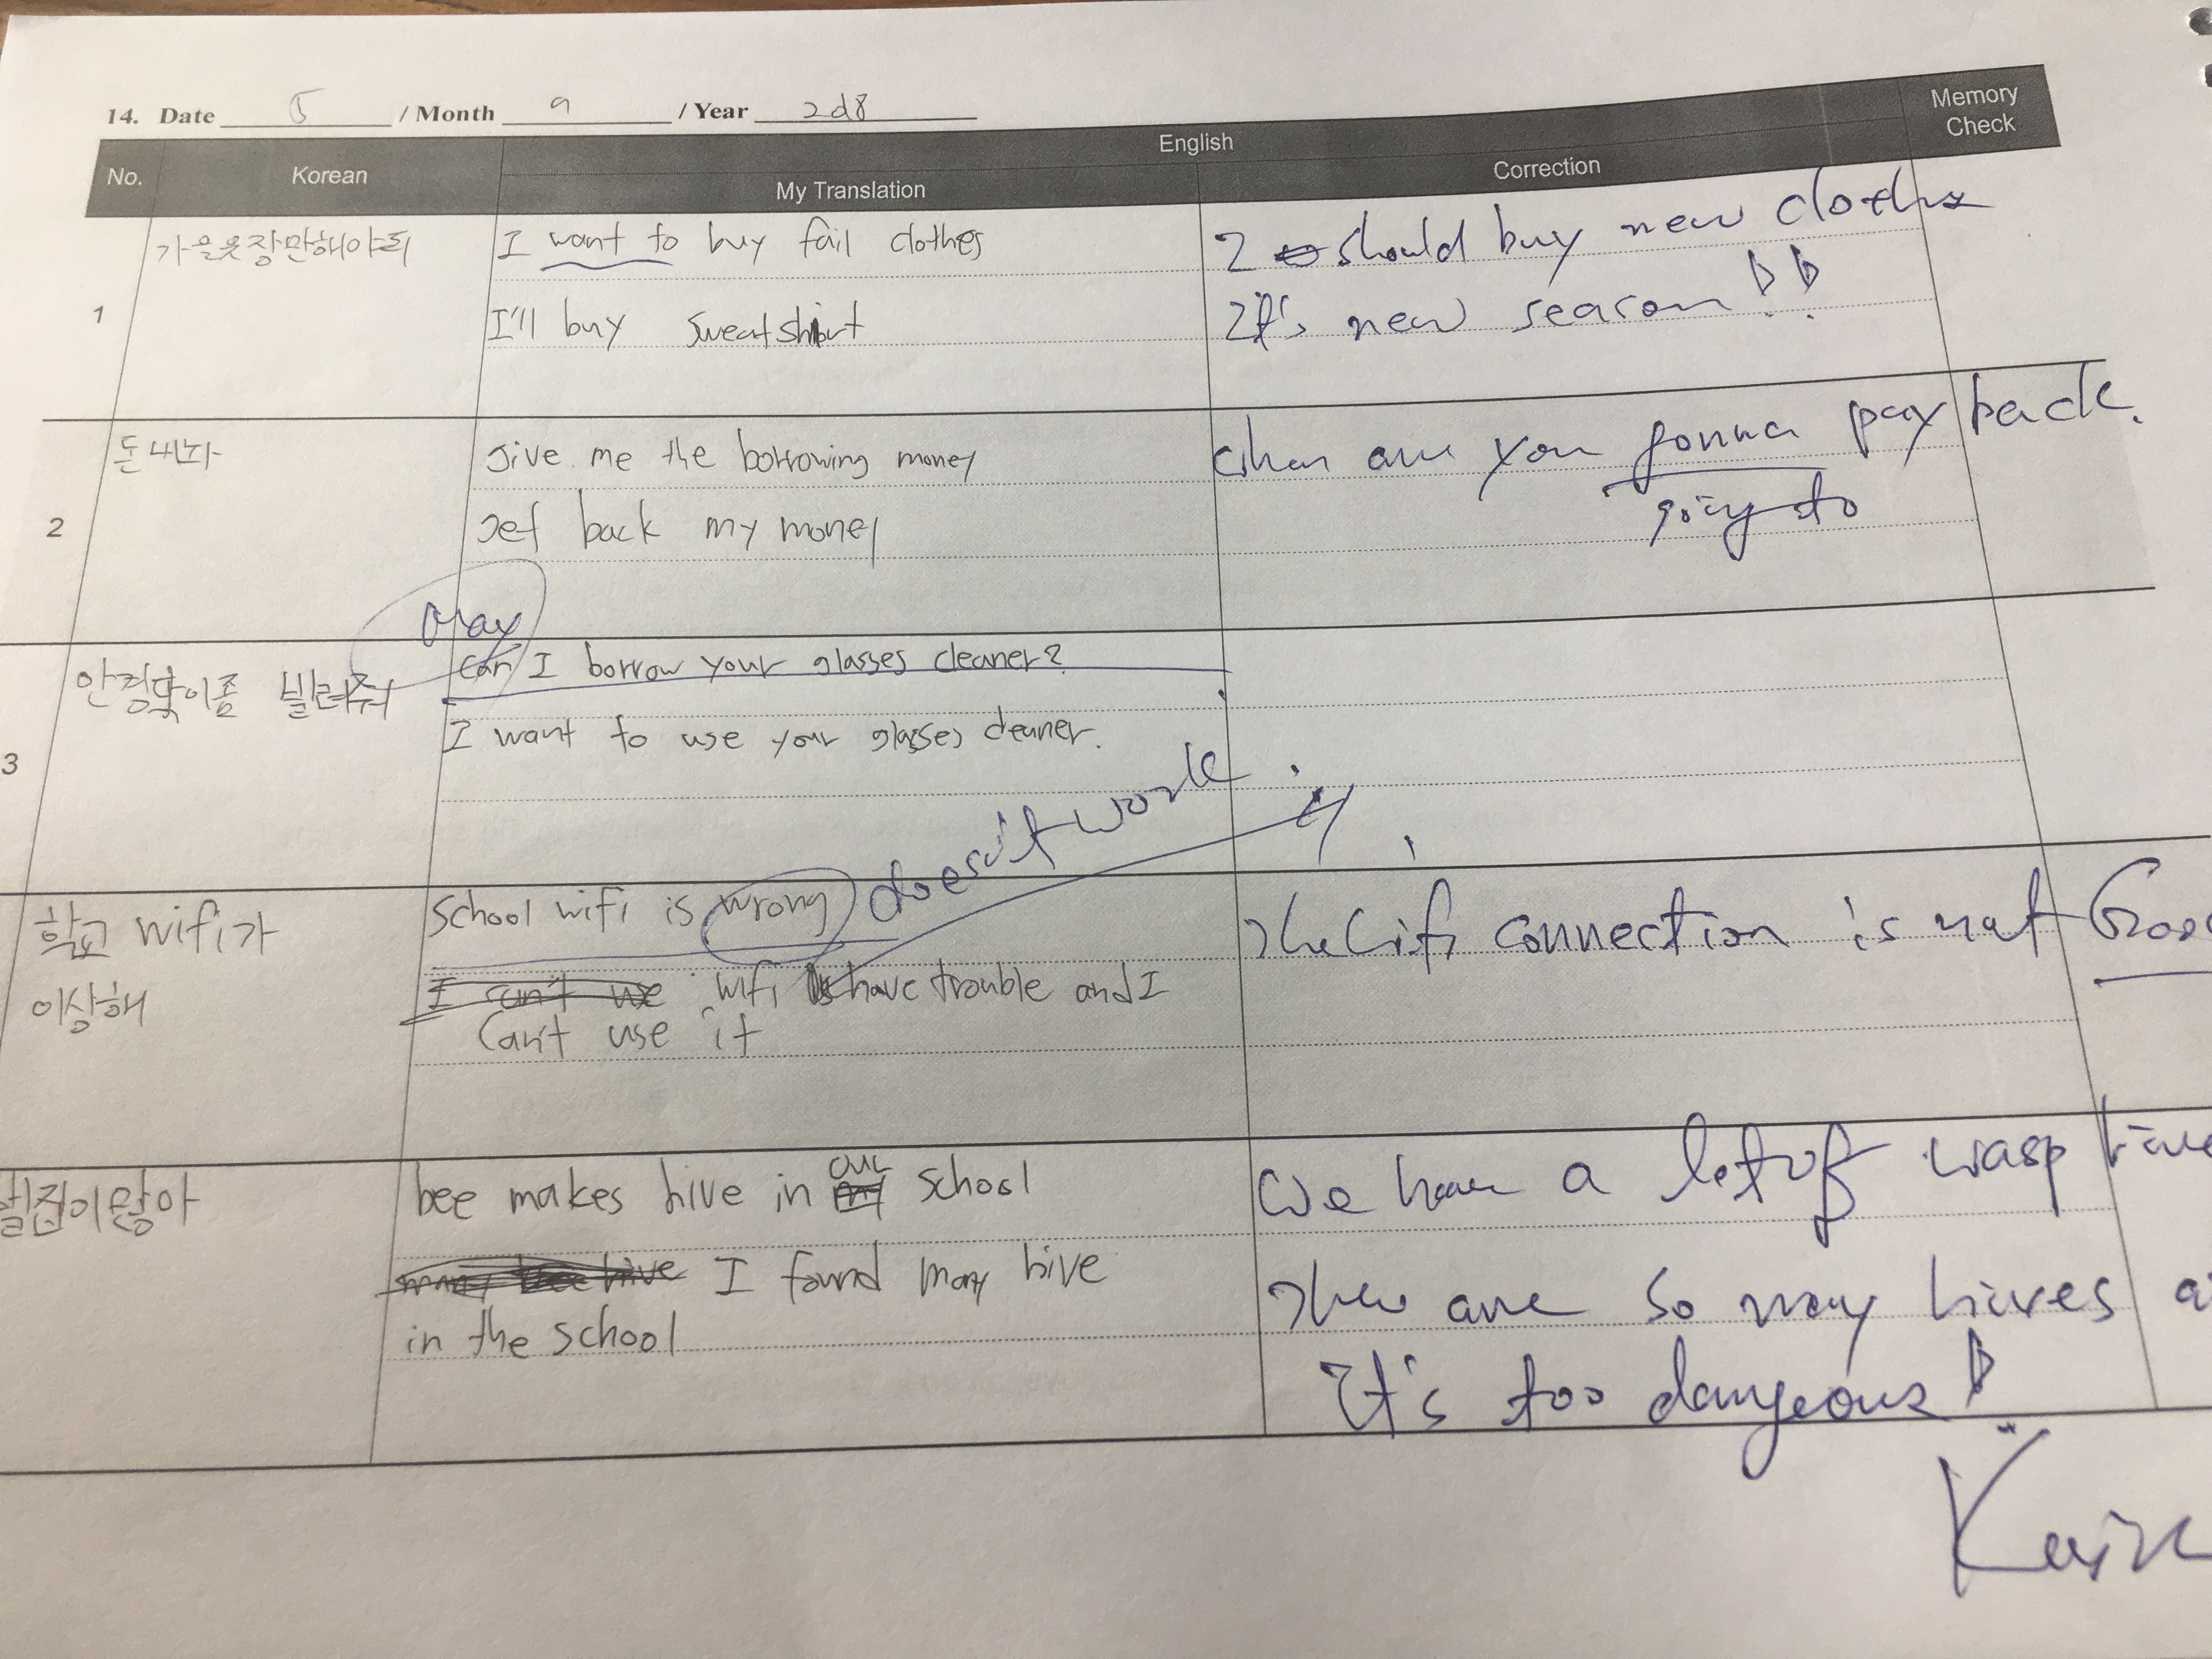 14. Date 5 / Month 9 / Year 2018
English
Memory Check
No. Korean My Translation Correction
1
가을옷장만해야돼
I want to buy fall clothes
I'll buy sweatshirt
I should buy new clothes
It's new season!!
2
돈내놔
give me the borrowing money
get back my money
When are you gonna pay back.
going to
3
안경닦이좀 빌려줘
May
Can I borrow your glasses cleaner?
I want to use your glasses cleaner.
학교 wifi가
이상해
School wifi is wrong doesn't work.
wifi have trouble and I
can't use it
The wifi connection is not
벌집이많아
bee makes hive in our school
I found many hive
in the school
We have a lot of wasp
There are so many hives
It's too dangeous!